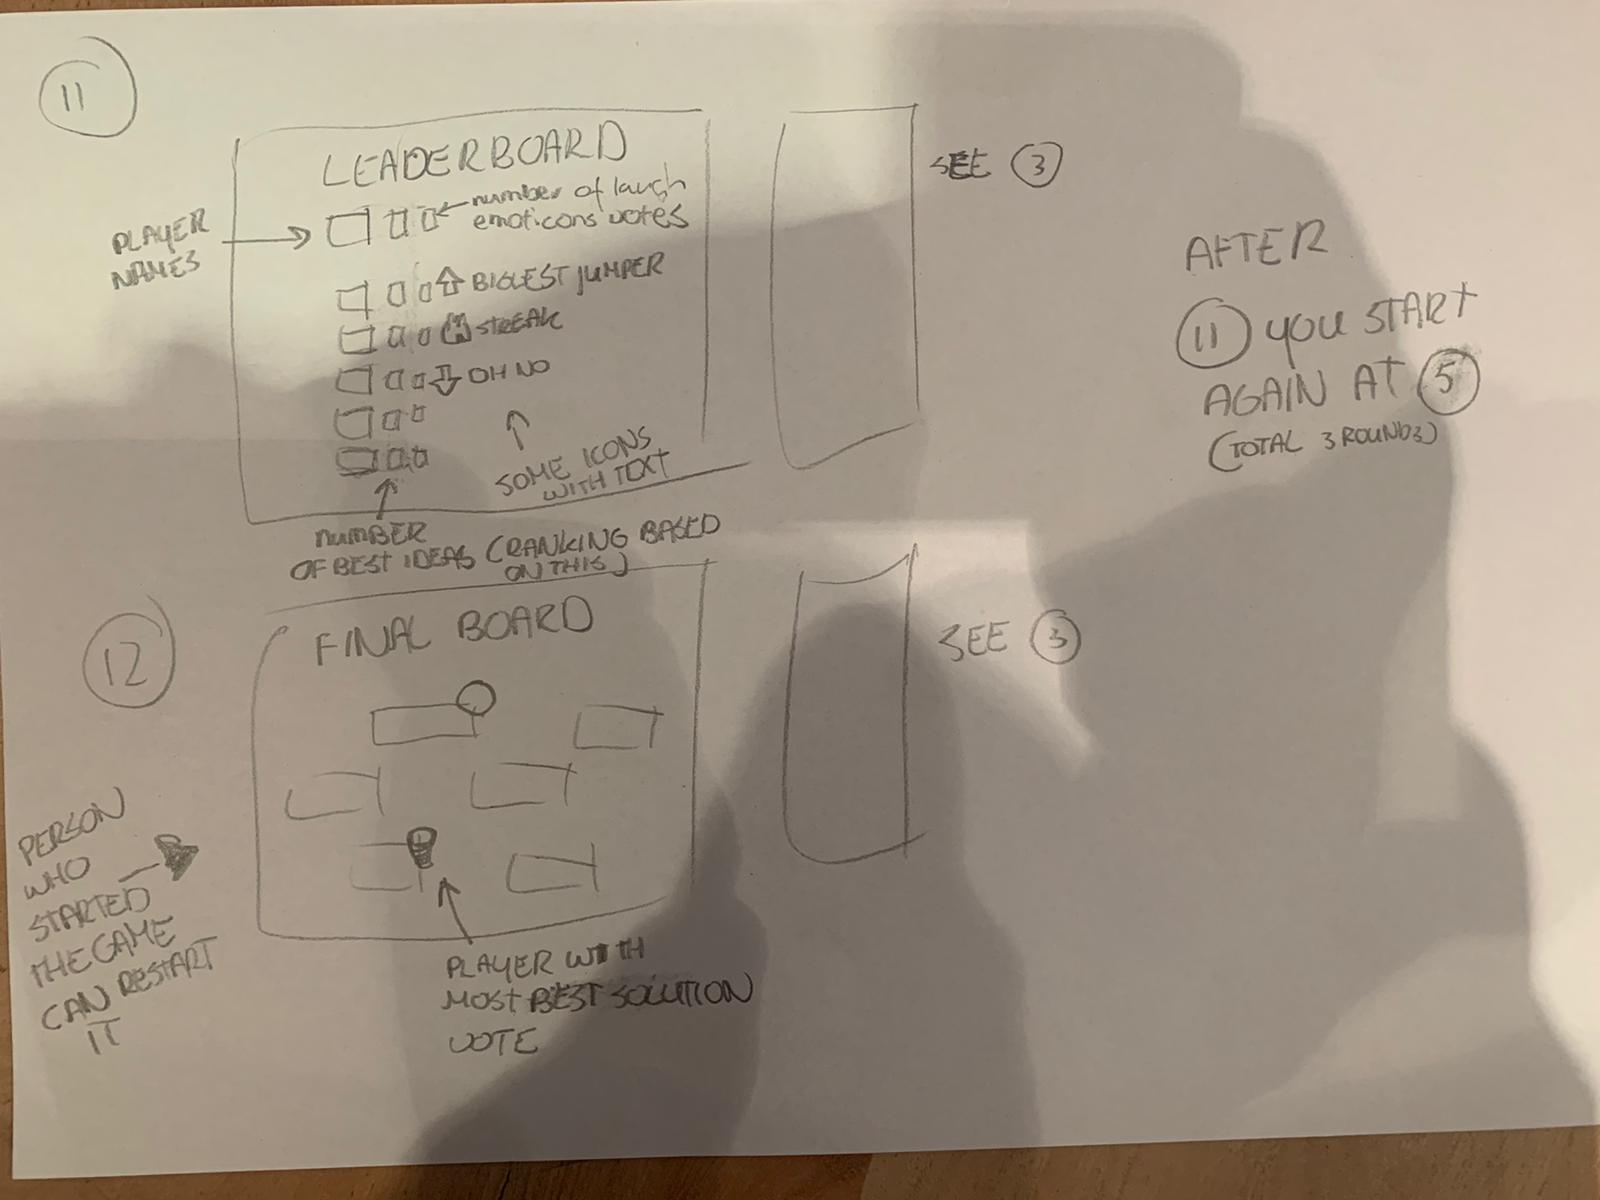 11
LEADERBOARD
number of laugh
emoticons votes
PLAYER
NAMES
BIGGEST JUMPER
STREAK
OH NO
SOME ICONS
WITH TEXT
NUMBER
OF BEST IDEAS (RANKING BASED
ON THIS)
SEE 3
AFTER
11 YOU START
AGAIN AT 5
(TOTAL 3 ROUNDS)
12
FINAL BOARD
SEE 3
PERSON
WHO
STARTED
THE GAME
CAN RESTART
IT
PLAYER WITH
MOST BEST SOLUTION
VOTE